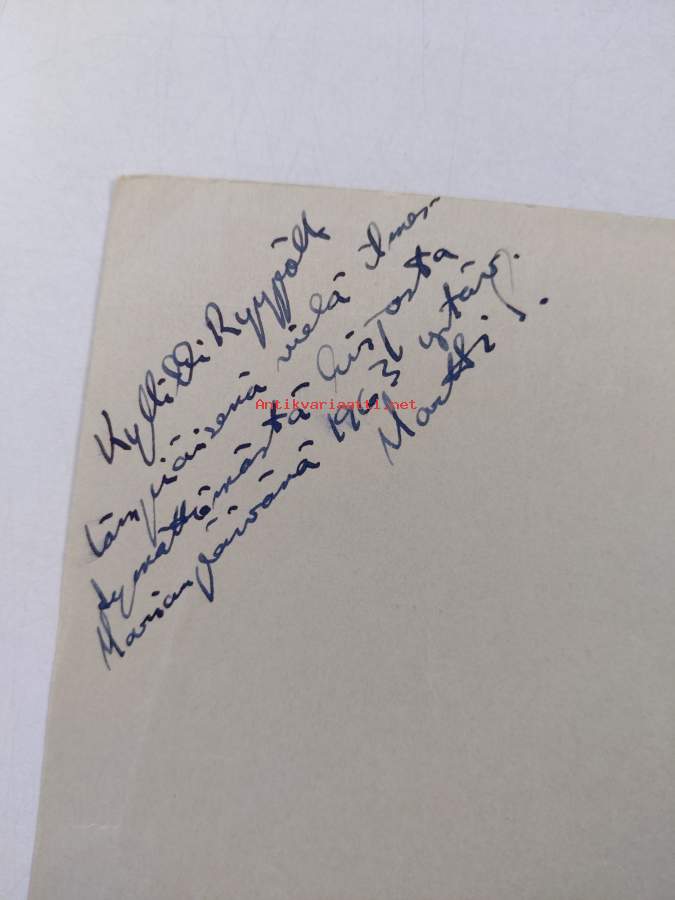 Kyllikki Ryypölle
lämpiäisenä vielä ilmes-
tymättömästä kirjasta
Marianpäivänä 1963 ystäv.
Martti J.
Antikvariaatti.net